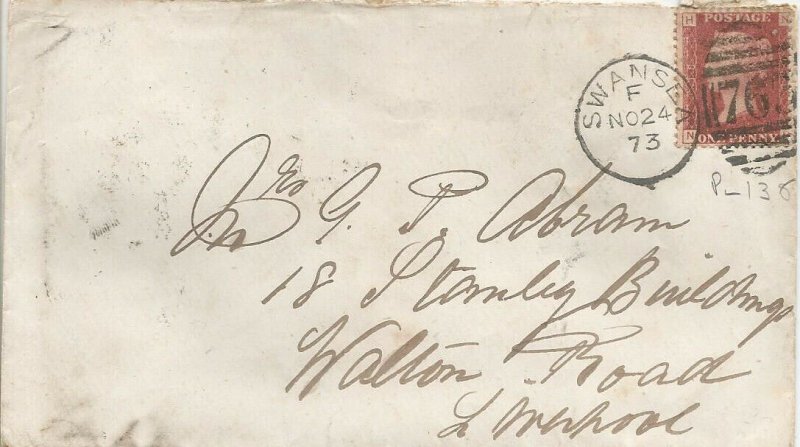 H N
POSTAGE
SWANSEA
F
NO 24
73
ONE PENNY
N
P-138
Mrs G. P. Abram
18 Stanley Buildings
Walton Road
Liverpool